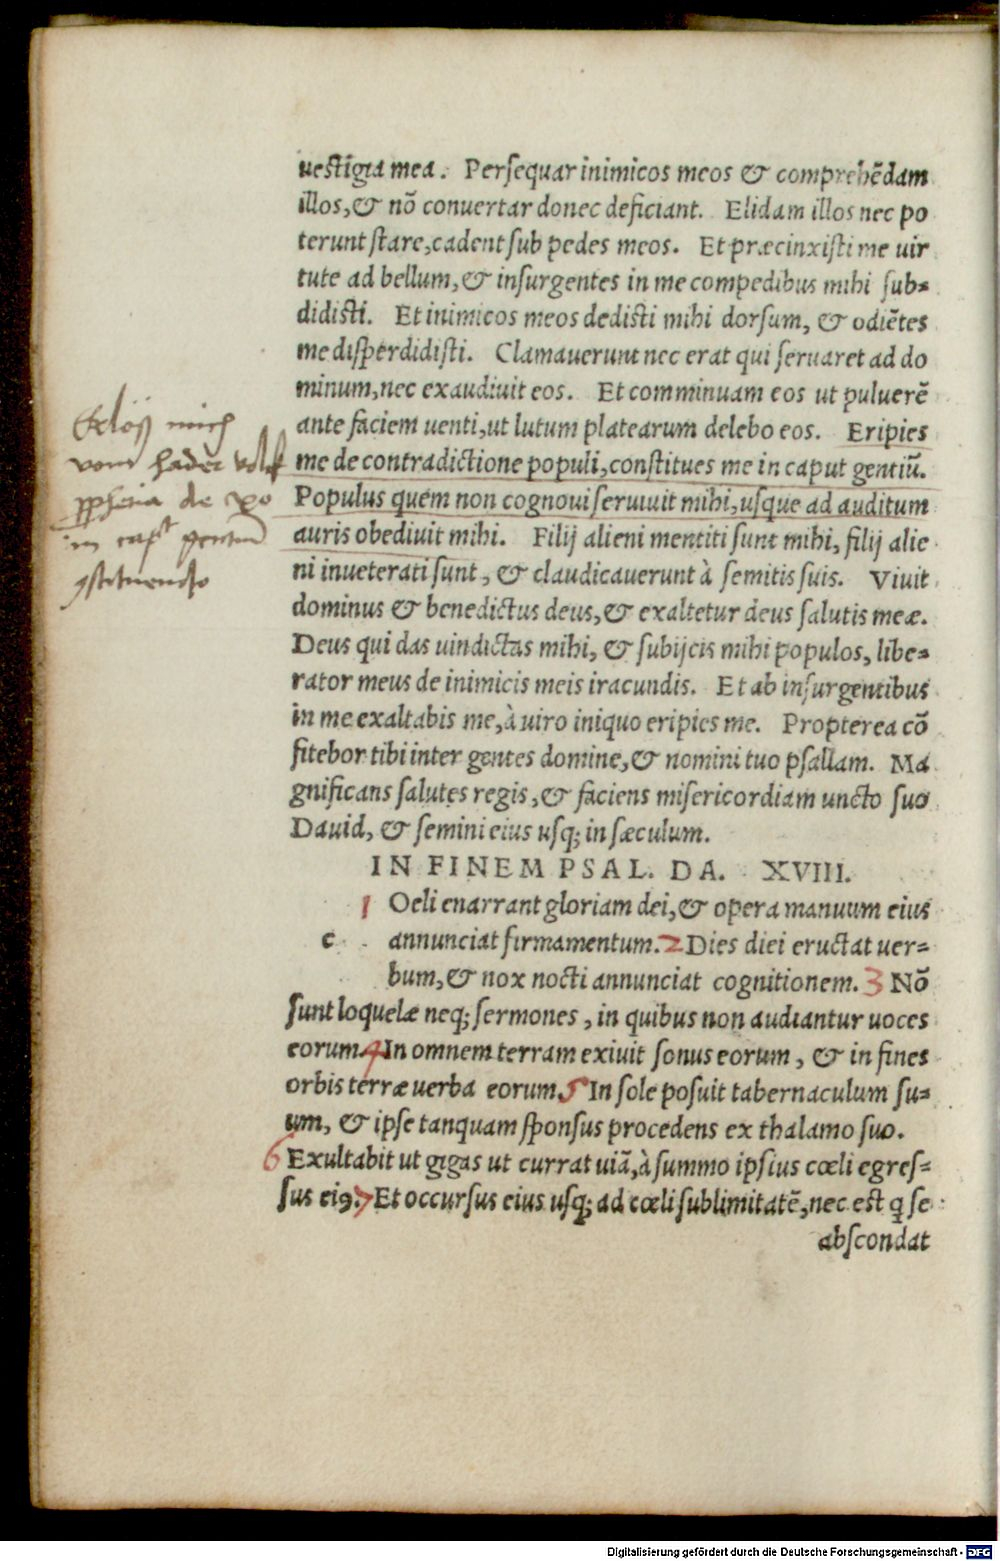 uestigia mea. Persequar inimicos meos & comprehẽdam
illos, & nõ conuertar donec deficiant. Elidam illos nec po
terunt stare, cadent sub pedes meos. Et præcinxisti me uir
tute ad bellum, & insurgentes in me compedibus mihi sub=
didisti. Et inimicos meos dedisti mihi dorsum, & odiẽtes
me disperdidisti. Clamauerunt nec erat qui seruaret ad do
minum, nec exaudiuit eos. Et comminuam eos ut puluerẽ
ante faciem uenti, ut lutum platearum delebo eos. Eripies
me de contradictione populi, constitues me in caput gentiũ.
Populus quem non cognoui seruiuit mihi, usque ad auditum
auris obediuit mihi. Filij alieni mentiti sunt mihi, filij alie
ni inueterati sunt, & claudicauerunt à semitis suis. Viuit
dominus & benedictus deus, & exaltetur deus salutis meæ.
Deus qui das uindictas mihi, & subijcis mihi populos, libe=
rator meus de inimicis meis iracundis. Et ab insurgentibus
in me exaltabis me, à uiro iniquo eripies me. Propterea cõ
fitebor tibi inter gentes domine, & nomini tuo psallam. Ma
gnificans salutes regis, & faciens misericordiam uncto suo
Dauid, & semini eius usq; in sæculum.
mich
vom hader
de xpo
in
IN FINEM PSAL. DA. XVIII.
1 Oeli enarrant gloriam dei, & opera manuum eius
c annunciat firmamentum. 2 Dies diei eructat uer=
bum, & nox nocti annunciat cognitionem. 3 Nõ
sunt loquelæ neq; sermones, in quibus non audiantur uoces
eorum. 4 In omnem terram exiuit sonus eorum, & in fines
orbis terræ uerba eorum. 5 In sole posuit tabernaculum su=
um, & ipse tanquam sponsus procedens ex thalamo suo.
6 Exultabit ut gigas ut currat uiã, à summo ipsius cœli egres=
sus eiꝯ. 7 Et occursus eius usq; ad cœli sublimitatẽ, nec est q̃ se
abscondat
Digitalisierung gefördert durch die Deutsche Forschungsgemeinschaft - DFG